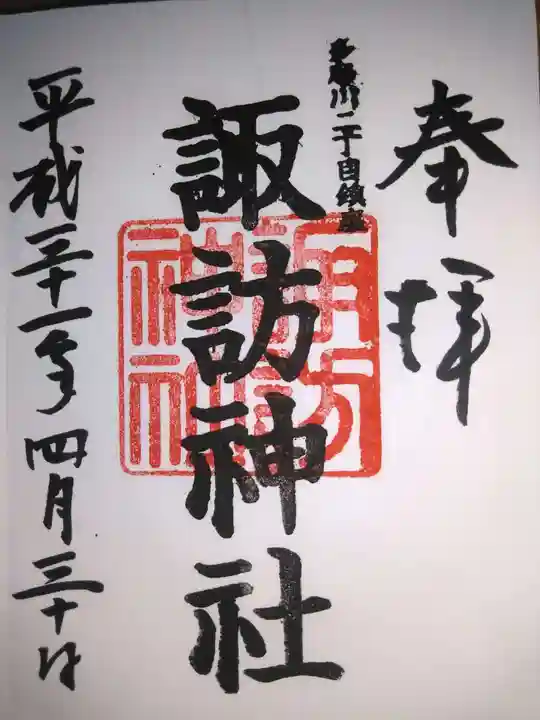 奉拝
多摩川二丁目鎮座
諏訪神社
諏訪神社
平成三十一年四月三十日